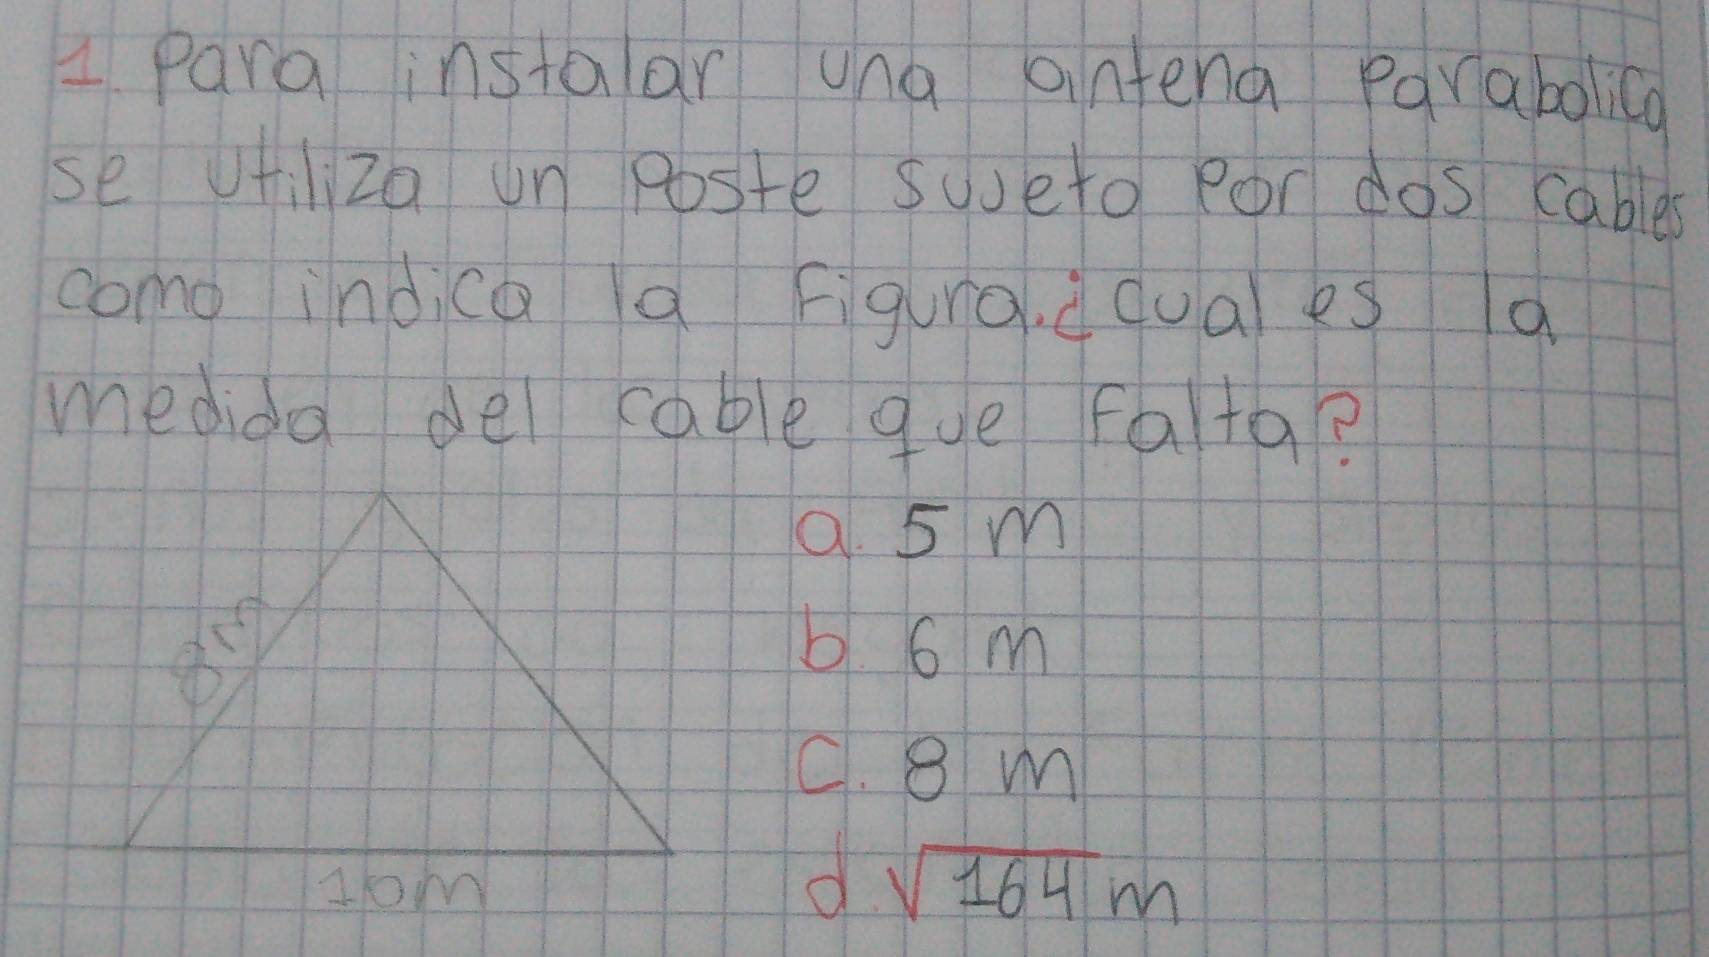 1. Para instalar una antena Parabolica
se utiliza un Poste sujeto Por dos cables
como indica la Figura.¿cual es la
medida del cable que Falta?
a. 5 m
b. 6 m
8m
c. 8 m
10m
d. √164 m